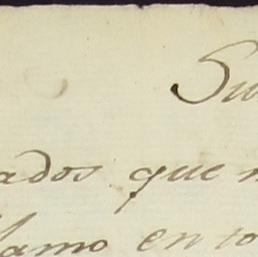 Su
ados que n
lamo en to